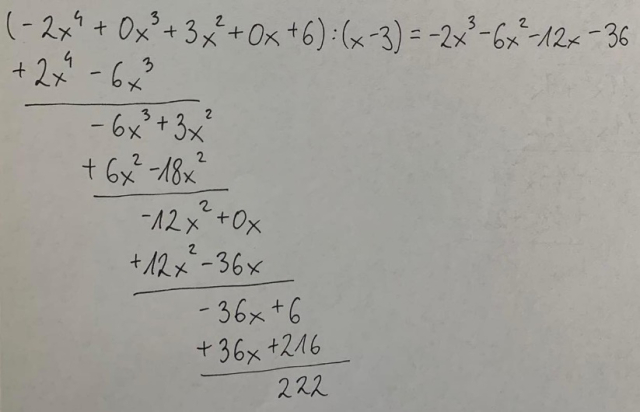 (-2x⁴ + 0x³ + 3x² + 0x + 6) : (x-3) = -2x³ - 6x² - 12x - 36
+ 2x⁴ - 6x³
- 6x³ + 3x²
+ 6x² - 18x²
-12x² + 0x
+12x² - 36x
- 36x + 6
+ 36x + 216
222